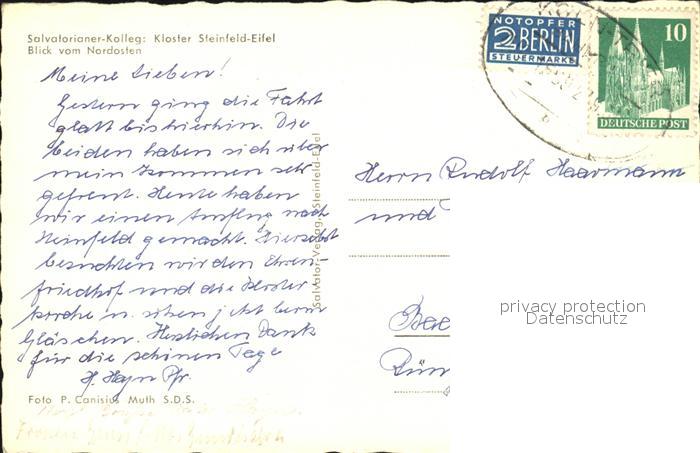 Salvatorianer-Kolleg: Kloster Steinfeld-Eifel
Blick vom Nordosten
NOTOPFER
2 BERLIN
STEUERMARKE
10
DEUTSCHE POST
Meine Lieben!
Gestern ging die Fahrt
glatt bis hierhin. Die
beiden haben sich über
mein Kommen sehr
gefreut. Heute haben
wir einen Ausflug nach
Steinfeld gemacht. Hierselbst
besuchten wir den Ehren-
friedhof und die Kloster
kirche u. sitzen jetzt beim
Gläschen. Herzlichen Dank
für die schönen Tage
H. Hayn Pfr.
Foto P. Canisius Muth S.D.S.
Salvator-Verlag, Steinfeld-Eifel
Herrn Rudolf Haarmann
und
privacy protection
Datenschutz